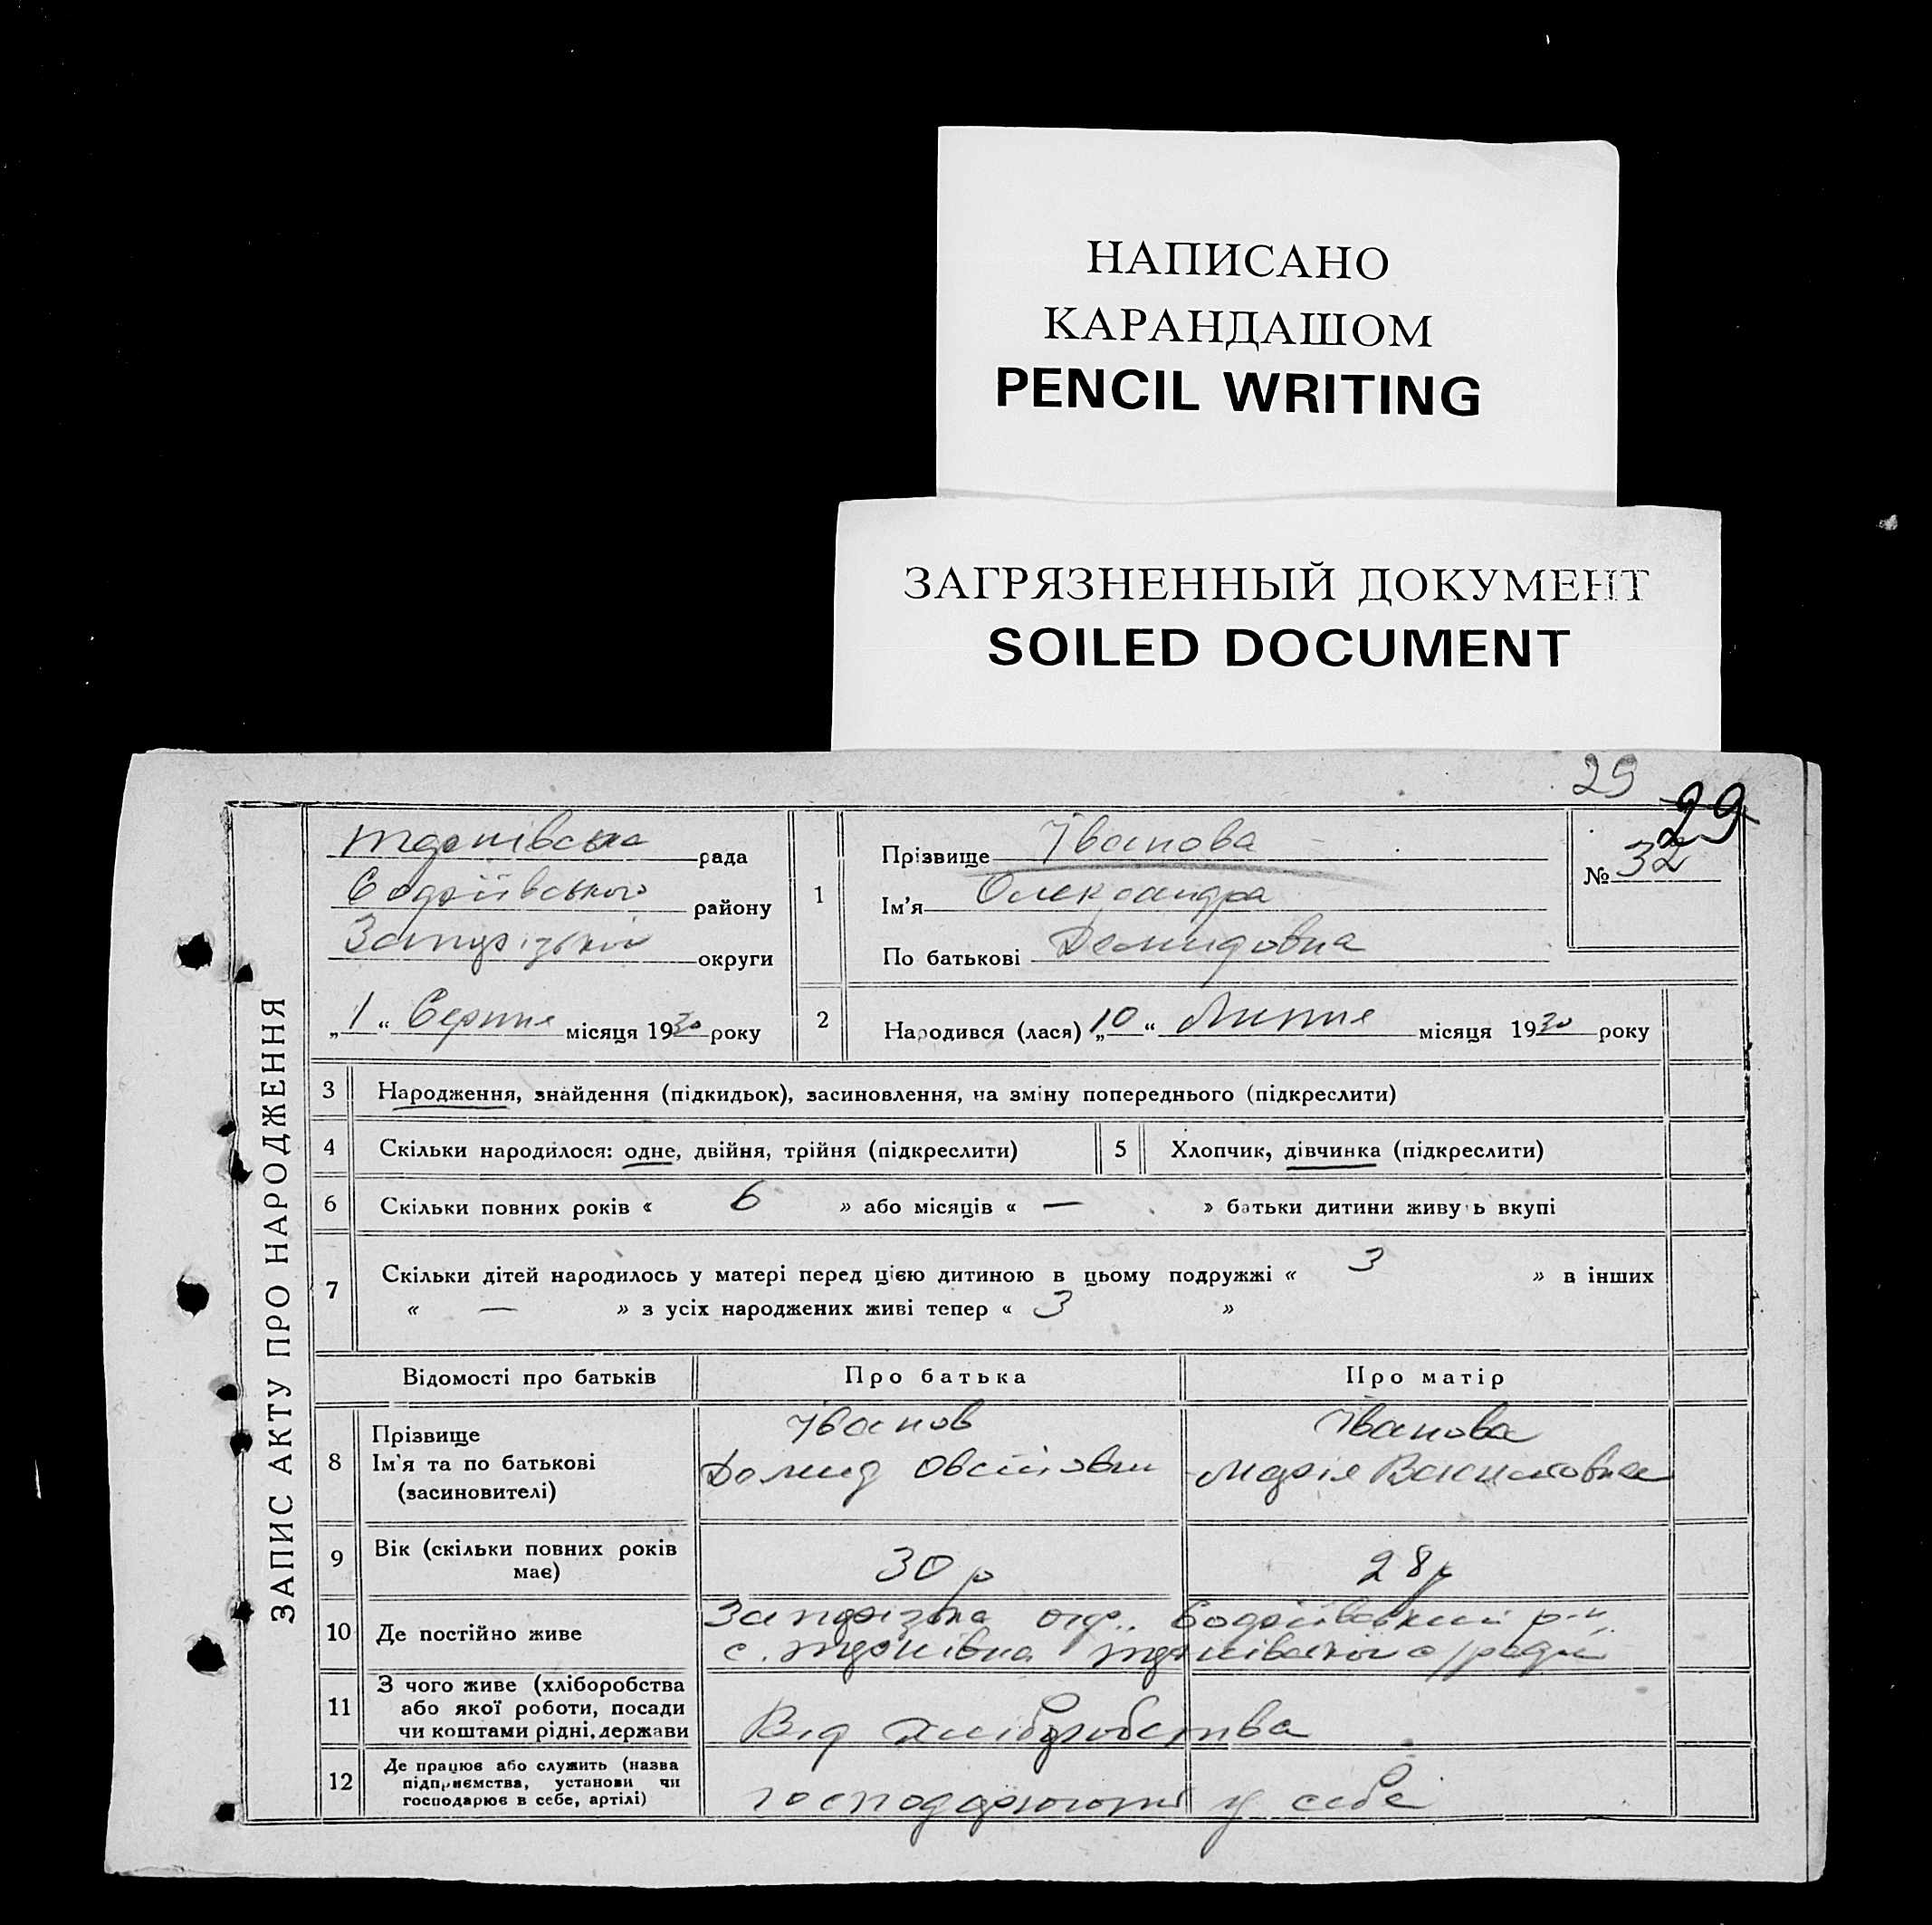 НАПИСАНО
КАРАНДАШОМ
PENCIL WRITING
ЗАГРЯЗНЕННЫЙ ДОКУМЕНТ
SOILED DOCUMENT
29
29
ЗАПИС АКТУ ПРО НАРОДЖЕННЯ
рада
району
округи
„1“ Серпня місяця 1930 року
1
Прізвище Іванова
Ім'я Олександра
По батькові Демидовна
№ 32
2 Народився (лася) „10“ Липня місяця 1930 року
3 Народження, знайдення (підкидьок), засиновлення, на зміну попереднього (підкреслити)
4 Скільки народилося: одне, двійня, трійня (підкреслити) 5 Хлопчик, дівчинка (підкреслити)
6 Скільки повних років « 6 » або місяців « — » батьки дитини живуть вкупі
7 Скільки дітей народилось у матері перед цією дитиною в цьому подружжі « 3 » в інших
« — » з усіх народжених живі тепер « 3 »
Відомості про батьків Про батька Про матір
8 Прізвище
Ім'я та по батькові
(засиновителі)
Іванов
Демид
Іванова
Марія
9 Вік (скільки повних років
має)
30 р 28 р
10 Де постійно живе
окр. р-н
с.
11 З чого живе (хліборобства
або якої роботи, посади
чи коштами рідні, держави
Від хліборобства
12 Де працює або служить (назва
підприємства, установи чи
господарює в себе, артілі)
у себе